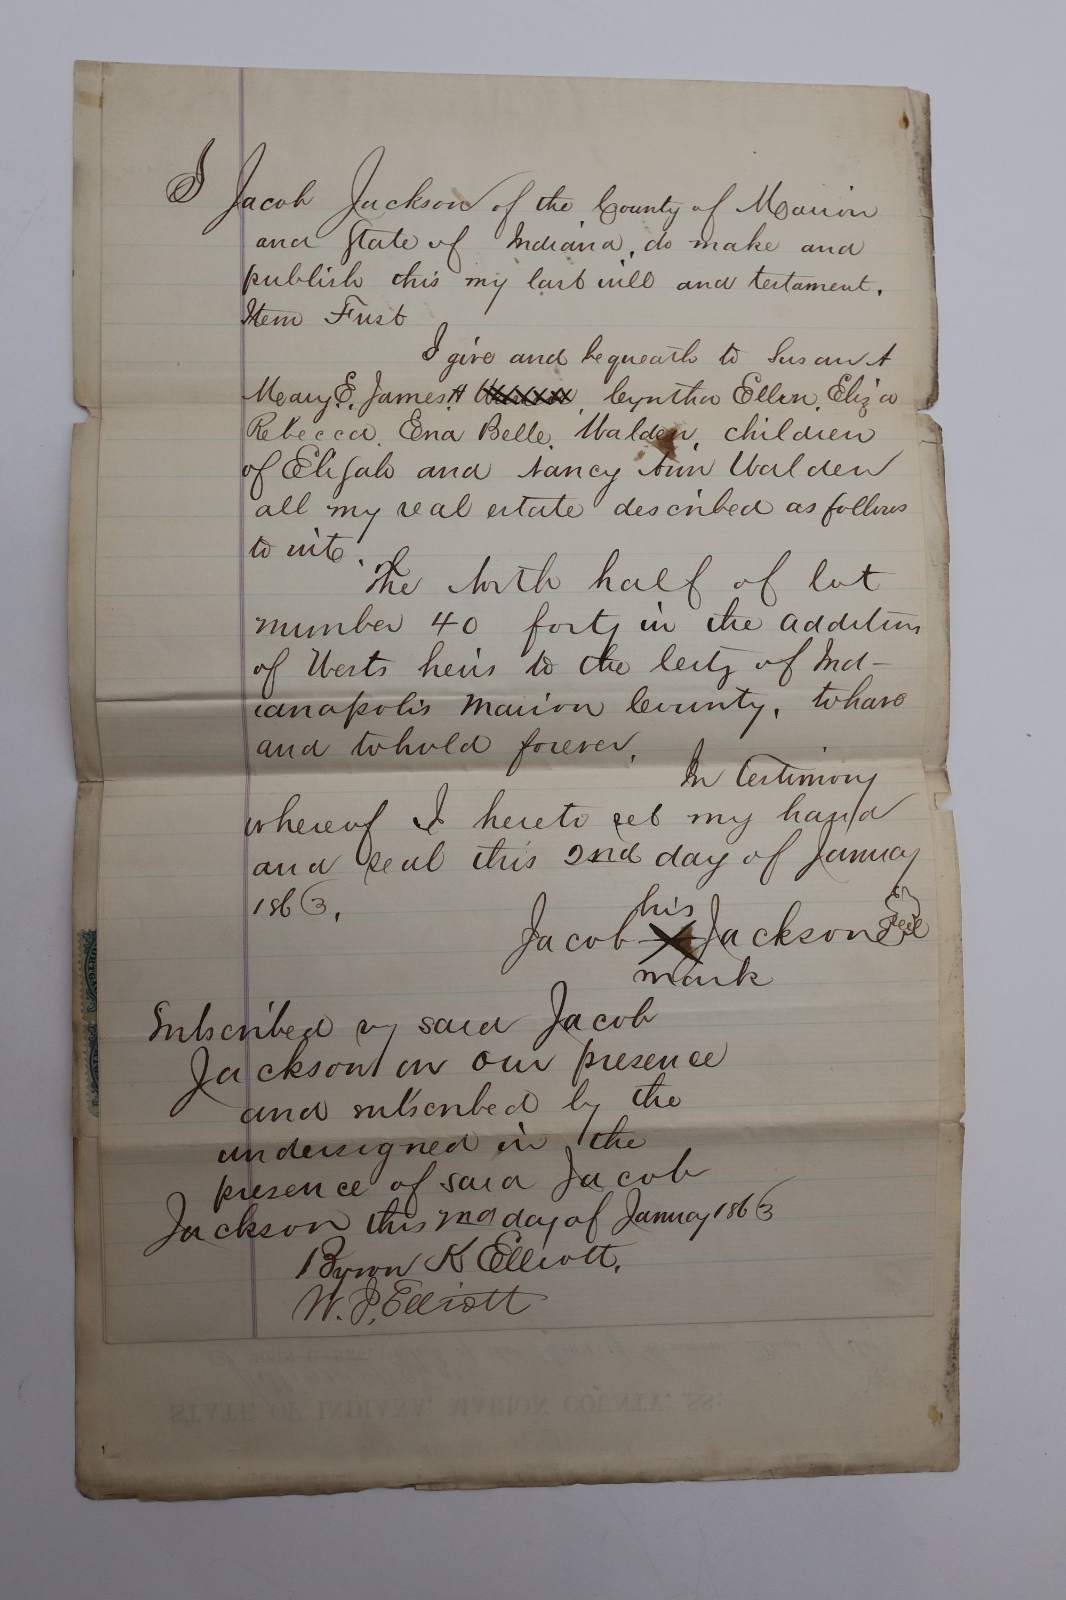 I Jacob Jackson of the County of Marion
and State of Indiana, do make and
publish this my last will and testament.
Item First
I give and bequeath to Susan A
Mary E. James H , Cyntha Ellen, Eliza
Rebecca, Ena Belle, Walden, children
of Elijah and Nancy Ann Walden
all my real estate described as follows
to wit.
The North half of lot
number 40 forty in the addition
of Wests heirs to the City of Ind-
ianapolis Marion County, to have
and to hold forever.
In testimony
whereof I hereto set my hand
and seal this 2nd day of January
1863.
his
Jacob X Jackson Seal
mark
Subscribed by said Jacob
Jackson in our presence
and subscribed by the
undersigned in the
presence of said Jacob
Jackson this 2nd day of January 1863
Byron K Elliott.
W. J. Elliott
STATE OF INDIANA, MARION COUNTY, SS: